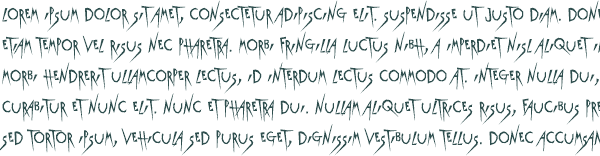 LOREM IPSUM DOLOR SIT AMET, CONSECTETUR ADIPISCING ELIT. SUSPENDISSE UT JUSTO DIAM. DONE
ETIAM TEMPOR VEL RISUS NEC PHARETRA. MORBI FRINGILLA LUCTUS NIBH, A IMPERDIET NISL ALIQUET I
MORBI HENDRERIT ULLAMCORPER LECTUS, ID INTERDUM LECTUS COMMODO AT. INTEGER NULLA DUI,
CURABITUR ET NUNC ELIT. NUNC ET PHARETRA DUI. NULLAM ALIQUET ULTRICES RISUS, FAUCIBUS PRE
SED TORTOR IPSUM, VEHICULA SED PURUS EGET, DIGNISSIM VESTIBULUM TELLUS. DONEC ACCUMSAN